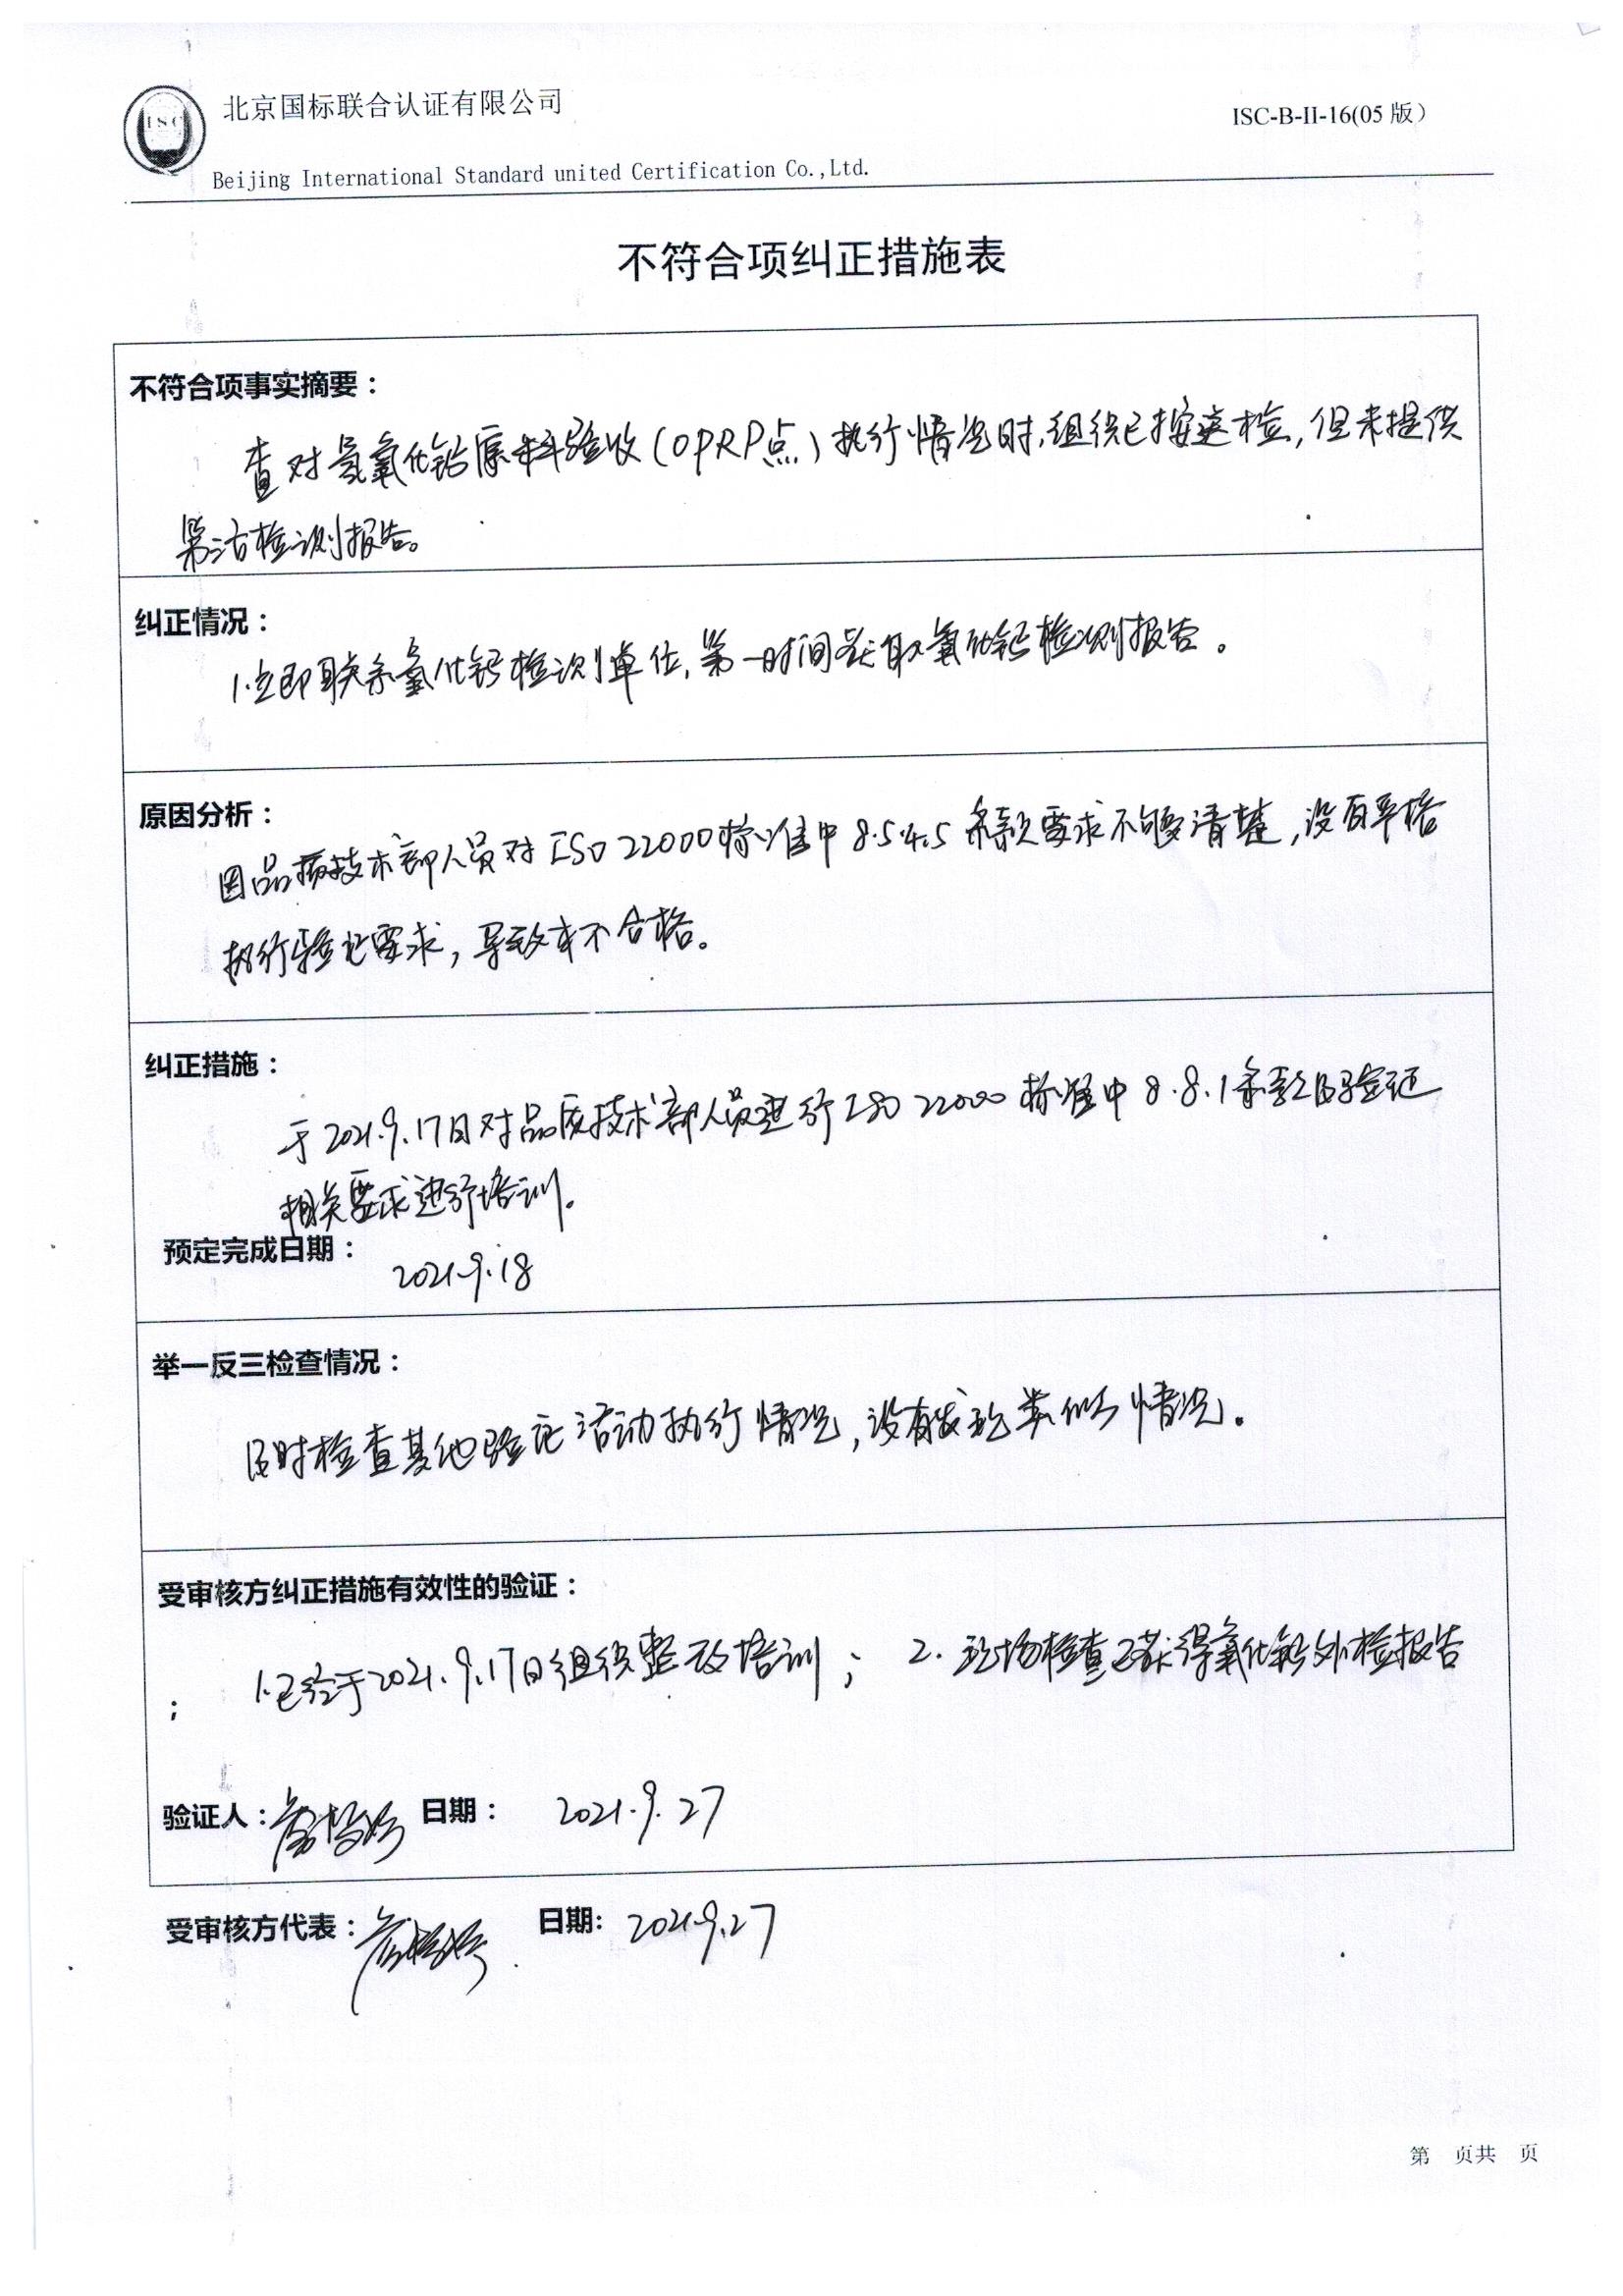 ISC
北京国标联合认证有限公司
ISC-B-II-16(05 版)
Beijing International Standard united Certification Co.,Ltd.
不符合项纠正措施表
不符合项事实摘要：
查对氢氧化钙原料验收(OPRP点)执行情况时,组织已按送检,但未提供
检测报告。
纠正情况：
1.立即联系氧化钙检测单位,第一时间获取氧化钙检测报告。
原因分析：
因品质技术部人员对ISO 22000标准中8.5.4.5条款要求不够清楚,没有严格
执行验证要求,导致本不合格。
纠正措施：
于2021.9.17日对品质技术部人员进行ISO 22000标准中8.8.1条款的验证
相关要求进行培训。
预定完成日期：
2021.9.18
举一反三检查情况：
同时检查其他验证活动执行情况,没有发现类似情况。
受审核方纠正措施有效性的验证：
1.已经于2021.9.17日组织整改培训； 2.现场检查已获得氧化钙外检报告
；
验证人： 日期： 2021.9.27
受审核方代表： 日期: 2021.9.27
第 页共 页